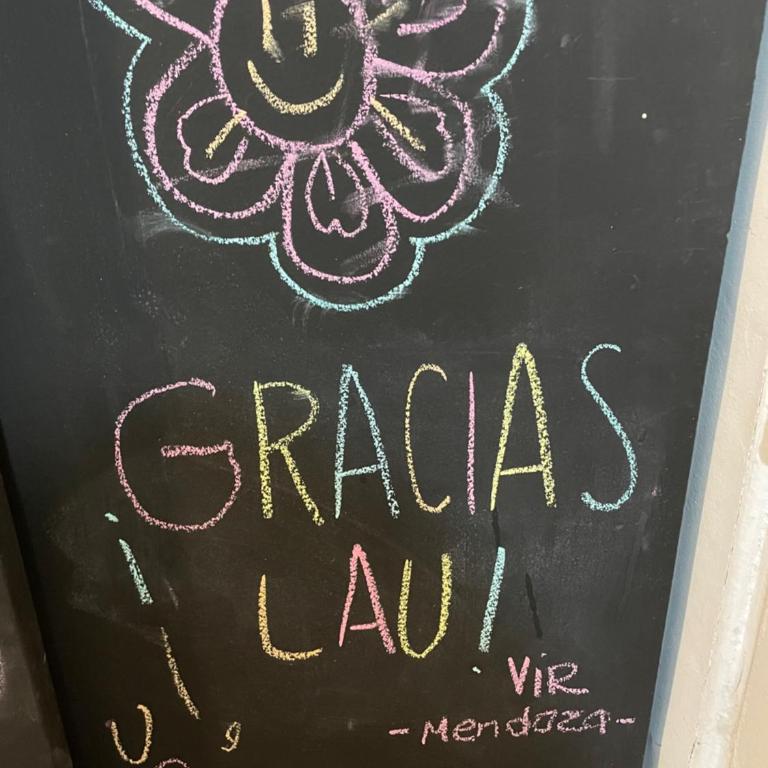 GRACIAS
LAU!
VIR
-Mendoza-